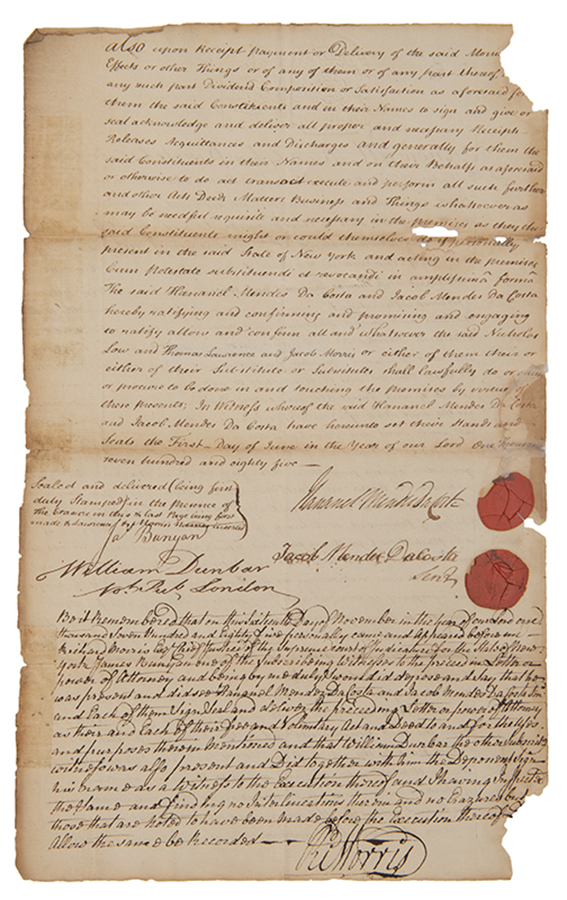 also upon Receipt Payment or Delivery of the said Mon
Effects or other Things or of any of them or of any part thereof
any such part Dividend Composition or Satisfaction as aforesaid for
them the said Constituents and in their Names to sign and give or
seal acknowledge and deliver all proper and necessary Receipts
Releases Acquittances and Discharges and generally for them the
said Constituents in their Names and on their Behalfs as aforesaid
or otherwise to do act transact execute and perform all such further
and other Acts Deeds Matters Business and Things whatsoever as
may be needful requisite and necessary in the premises as they the
said Constituents might or could themselves do if personally
present in the said State of New York and acting in the premises
Cum Potestate substituendi et revocandi in amplissimâ formâ
The said Hananel Mendes Da Costa and Jacob Mendes Da Costa
hereby ratifying and confirming and promising and engaging
to ratify allow and confirm all and whatsoever the said Nicholas
Low and Thomas Lawrence and Jacob Morris or either of them their or
either of their Substitute or Substitutes shall lawfully do or
or procure to be done in and touching the premises by virtue of
these presents; In Witness whereof the said Hananel Mendes Da Costa
and Jacob Mendes Da Costa have hereunto set their Hands and
Seals the First Day of June in the Year of our Lord One Thousand
seven hundred and eighty five —
Sealed and delivered (being first
duly Stamped) in the presence of
the Erazure in this & last Page being first
made &
Js Bunyan
Hananel Mendes Da Costa
Jacob Mendes DaCosta
Junr
William Dunbar
Not Pub London
Be it Remembered that on this Sixteenth Day of November in the year of our Lord one
thousand Seven Hundred and Eighty five personally came and Appeared before me
Richard Morris Esq Chief Justice of the Supreme court of Judicature for the State of New
York James Bunyan one of the Subscribeing Witnesses to the preceeding Letter or
power of Attorney and being by me duly Sworn did depose and say that he
was present and did see Hananel Mendes Da Costa and Jacob Mendes Da Costa Jun
and Each of them Sign Seal and deliver the preceeding Letter or power of Attorney
as their and Each of their free and Voluntary Act and Deed to and for the Uses
and purposes therein Mentioned and that William Dunbar the other Subscribing
witness was also present and Did together with him the Deponent Sign
his name as a Witness to the Execution thereof and I having Inspected
the Same and finding no Interlineations therein and no Erazures but
those that are Noted to have been made before the Execution thereof
Allow the same to be Recorded —
Ri Morris